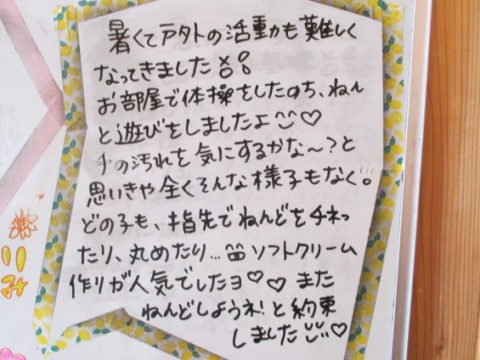 暑くてアタトの活動も難しく
なってきました
お部屋で体操をしたのち、ねん
ど遊びをしましたよ♡
手の汚れを気にするかな〜?と
思いきや全くそんな様子もなく。
どの子も、指先でねんどをチネっ
たり、丸めたり...ソフトクリーム
作りが人気でしたヨ♡♡また
ねんどしようネ!と約束
しました♡